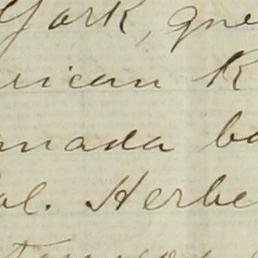 York, gue
rican K
anada ba
ol. Herbe